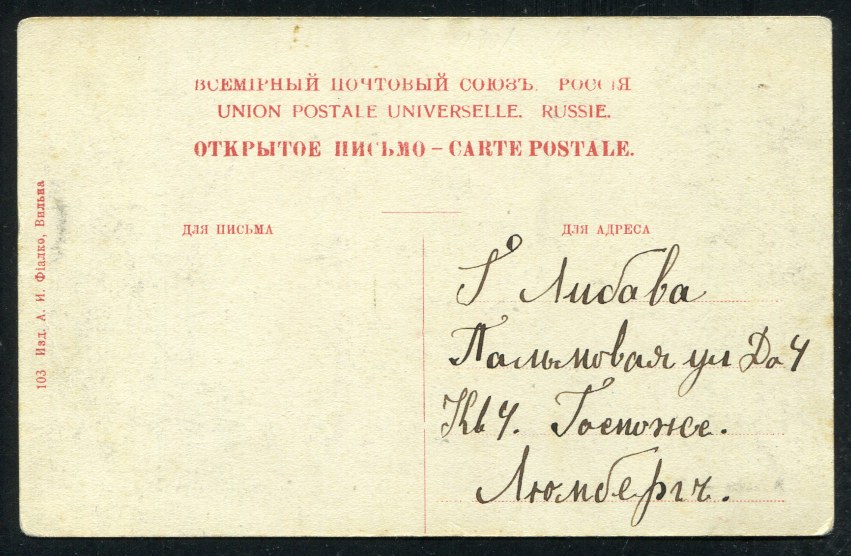 ВСЕМІРНЫЙ ПОЧТОВЫЙ СОЮЗЪ. РОССІЯ
UNION POSTALE UNIVERSELLE. RUSSIE.
ОТКРЫТОЕ ПИСЬМО – CARTE POSTALE.
ДЛЯ ПИСЬМА
ДЛЯ АДРЕСА
Г Либава
Пальмовая ул До 4
Кв 4. Госпоже.
Люмбергъ.
103 Изд. А. И. Фіалко, Вильна